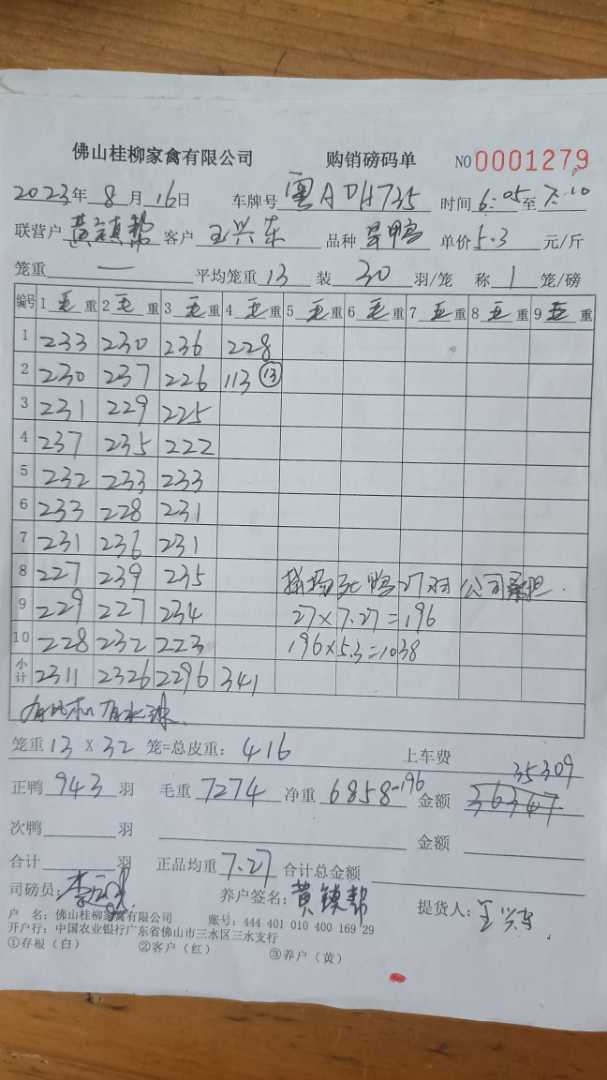 佛山桂柳家禽有限公司 购销磅码单 NO 0001279
2023年 8 月 16 日 车牌号 粤ADH735 时间 6:05 至 7:10
联营户 黄镇帮 客户 王兴东 品种 旱鸭 单价 5.3 元/斤
笼重 一 平均笼重 13 装 30 羽/笼 称 1 笼/磅
编号 1 毛 重 2 毛 重 3 毛 重 4 毛 重 5 毛 重 6 毛 重 7 毛 重 8 毛 重 9 毛 重
1 233 230 236 228
2 230 237 226 113 ⑬
3 231 229 225
4 237 235 222
5 232 233 233
6 233 228 231
7 231 236 231
8 227 239 235 死鸭27羽 公司承担.
9 229 227 234 27×7.27=196
10 228 232 223 196×5.3=1038
小计 2311 2326 2296 341
笼重 13 × 32 笼=总皮重: 416 上车费
35309
正鸭 943 羽 毛重 7274 净重 6858-196 金额 36347
次鸭 羽 金额
合计 羽 正品均重 7.27 合计总金额
司磅员: 养户签名: 黄镇帮 提货人: 王兴东
户 名: 佛山桂柳家禽有限公司 账号: 444 401 010 400 169 29
开户行: 中国农业银行广东省佛山市三水区三水支行
①存根(白) ②客户(红) ③养户(黄)